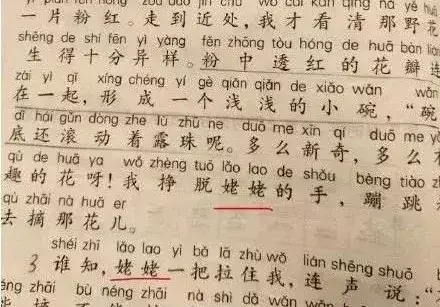 piàn fěn hóng zǒu dào jìn chù wǒ cái kàn qīng nà yě huā
一片粉红。走到近处,我才看清那野花
shēng de shí fēn yì yàng fěn zhōng tòu hóng de huā bàn lián
生得十分异样。粉中透红的花瓣连
zài yì qǐ xíng chéng yí gè qiǎn qiǎn de xiǎo wǎn wǎn
在一起,形成一个浅浅的小碗,“碗
dǐ hái gǔn dòng zhe lù zhū ne duō me xīn qí duō me
底还滚动着露珠呢。多么新奇,多么
qù de huā ya wǒ zhèng tuō lǎo lao de shǒu bèng tiào
趣的花呀!我挣脱姥姥的手,蹦跳
qù zhāi nà huā er
去摘那花儿。
shéi zhī lǎo lao yì bǎ lā zhù wǒ lián shēng shuō
3 谁知,姥姥一把拉住我,连声说:“
zhāi bù néng zhāi nà shì dǎ wǎn